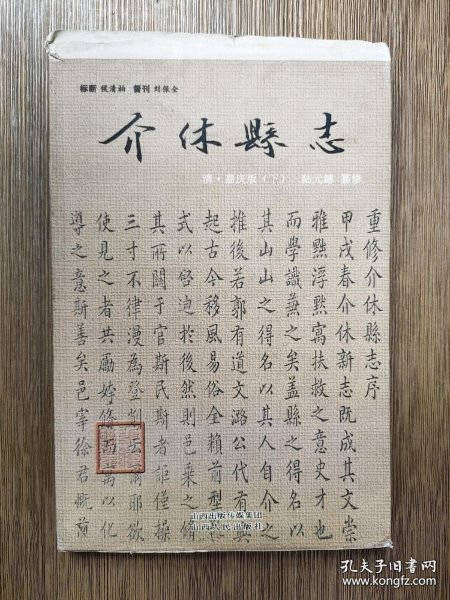 标断 侯清柏 督刊 刘保全
介休縣志
清·嘉庆版（下） 陆元鏸 纂修
重修介休縣志序
甲戌春介休新志既成其文崇
雅黜浮黜寓扶救之意史才也
而學識兼之矣盖縣之得名以
其山山之得名以其人自介之
推後若郭有道文潞公代有興
起古今移風易俗全賴前型
式以啓迪於後然則邑乘之脩
其所關于官斯民斯者詎僅操
三寸不律漫為登 云爾耶欲
使見之者共勵 脩 以化
導之意斯善矣邑宰徐君慨前
山西出版传媒集团
山西人民出版社
孔夫子旧书网
www.kongfz.com